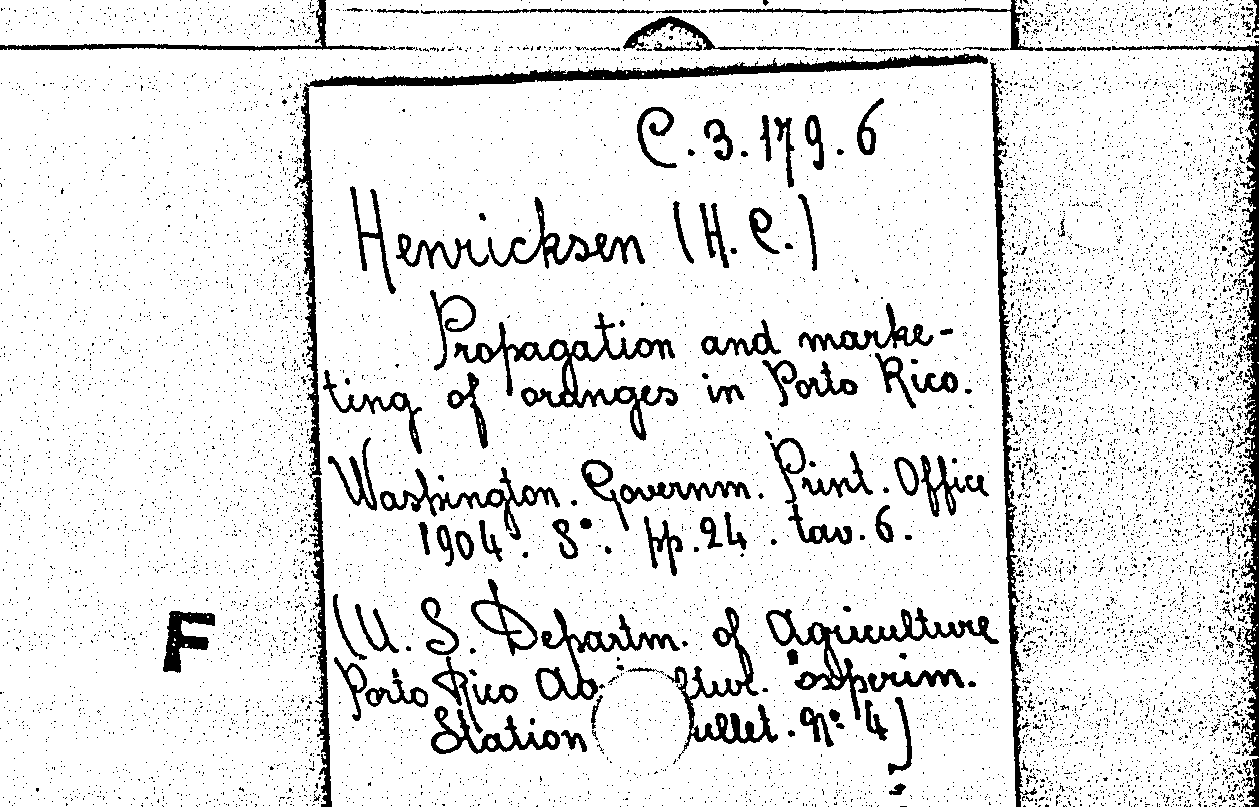 C.3.179.6
Henricksen (H. C.)
Propagation and marke-
ting of oranges in Porto Rico.
Washington. Governm. Print. Office
1904. 8°. pp. 24. tav. 6.
(U. S. Departm. of Agriculture
Porto Rico experim.
Station N.° 4)
F